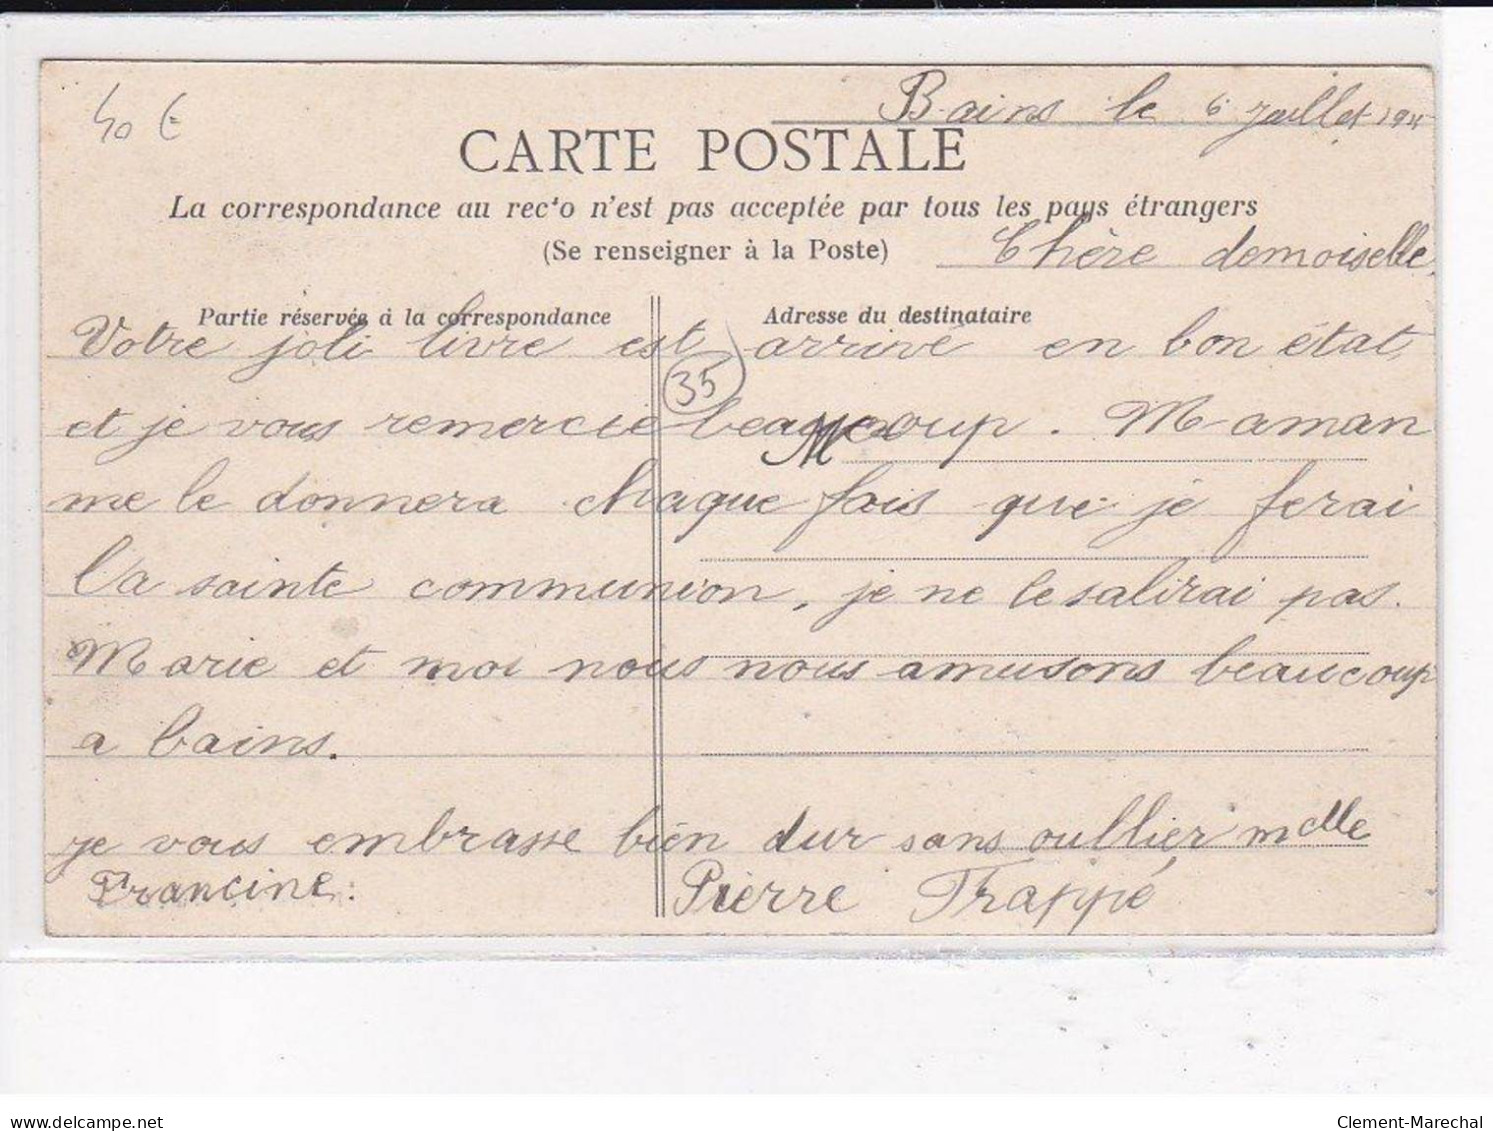 40 €
Bains le 6 juillet 1911
CARTE POSTALE
La correspondance au recto n'est pas acceptée par tous les pays étrangers
(Se renseigner à la Poste)
Chère demoiselle,
Partie réservée à la correspondance
Adresse du destinataire
Votre joli livre est arrivé en bon état,
35
et je vous remercie beaucoup. Maman
M
me le donnera chaque fois que je ferai
la sainte communion, je ne le salirai pas.
Marie et moi nous nous amusons beaucoup
a bains.
je vous embrasse bien dur sans oullier mdlle
Francine:
Pierre Frappé
delcampe.net
Clement-Marechal